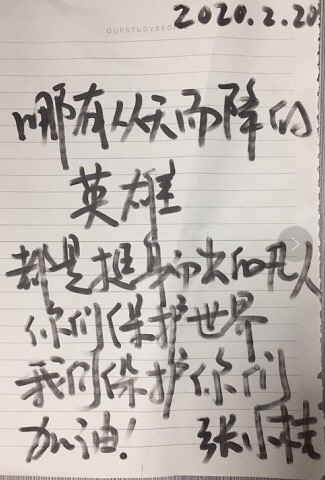 2020.2.20
OURSTUDYREC
哪有从天而降的
英雄
都是挺身而出的凡人
你们保护世界
我们保护你们
加油! 张小桂